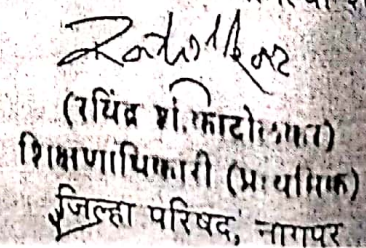 (रविंद्र शं. काटोलकर)
शिक्षणाधिकारी (प्राथमिक)
जिल्हा परिषद, नागपूर